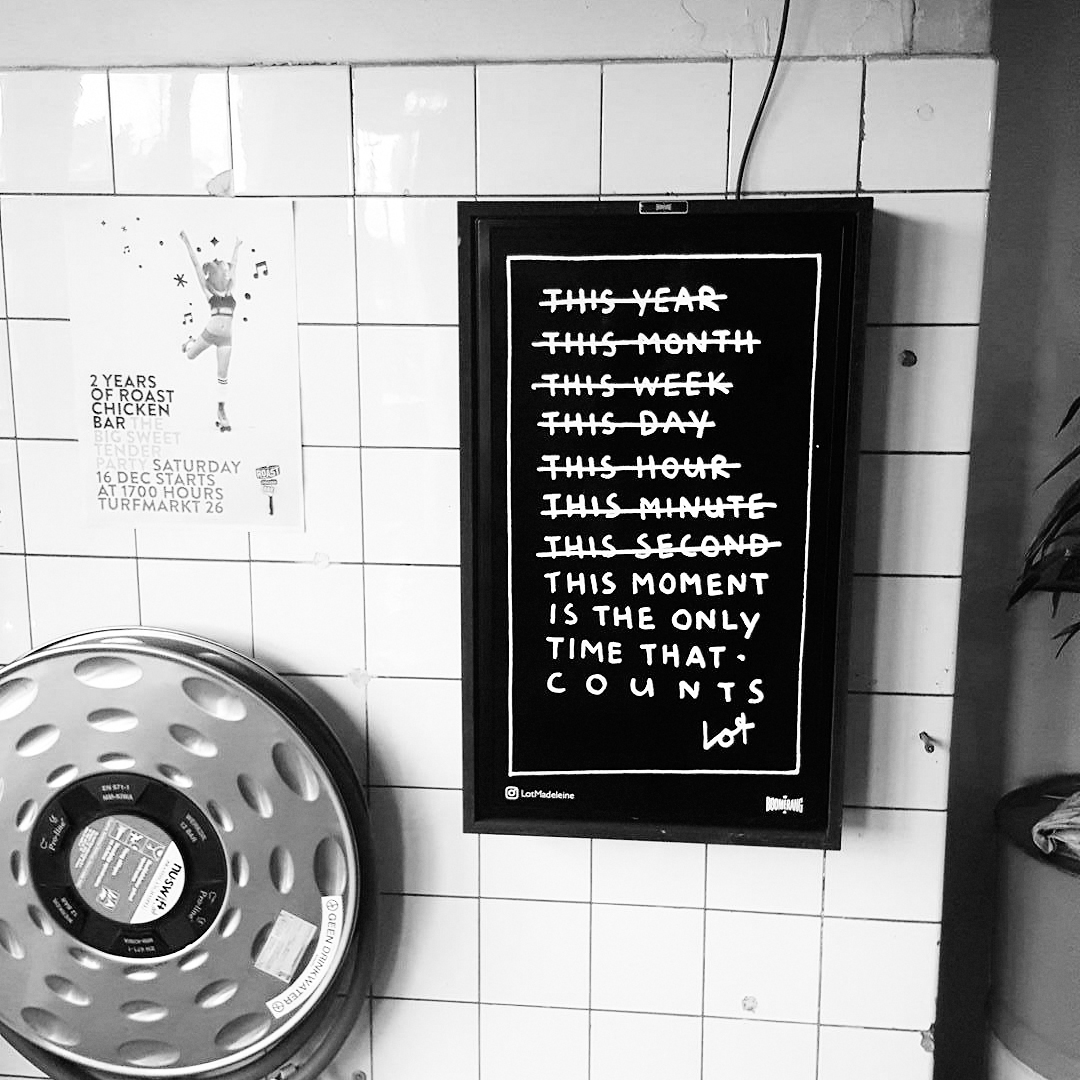 2 YEARS
OF ROAST
CHICKEN
BAR THE
BIG SWEET
TENDER
PARTY SATURDAY
16 DEC STARTS
AT 1700 HOURS
TURFMARKT 26
ROAST
THIS YEAR
THIS MONTH
THIS WEEK
THIS DAY
THIS HOUR
THIS MINUTE
THIS SECOND
THIS MOMENT
IS THE ONLY
TIME THAT
COUNTS
Lot
LotMadeleine
BOOMERANG
EN 671-1
Pro-line
12 BAR
Pro-line
12 BAR
EN 671-1
GEEN DRINKWATER